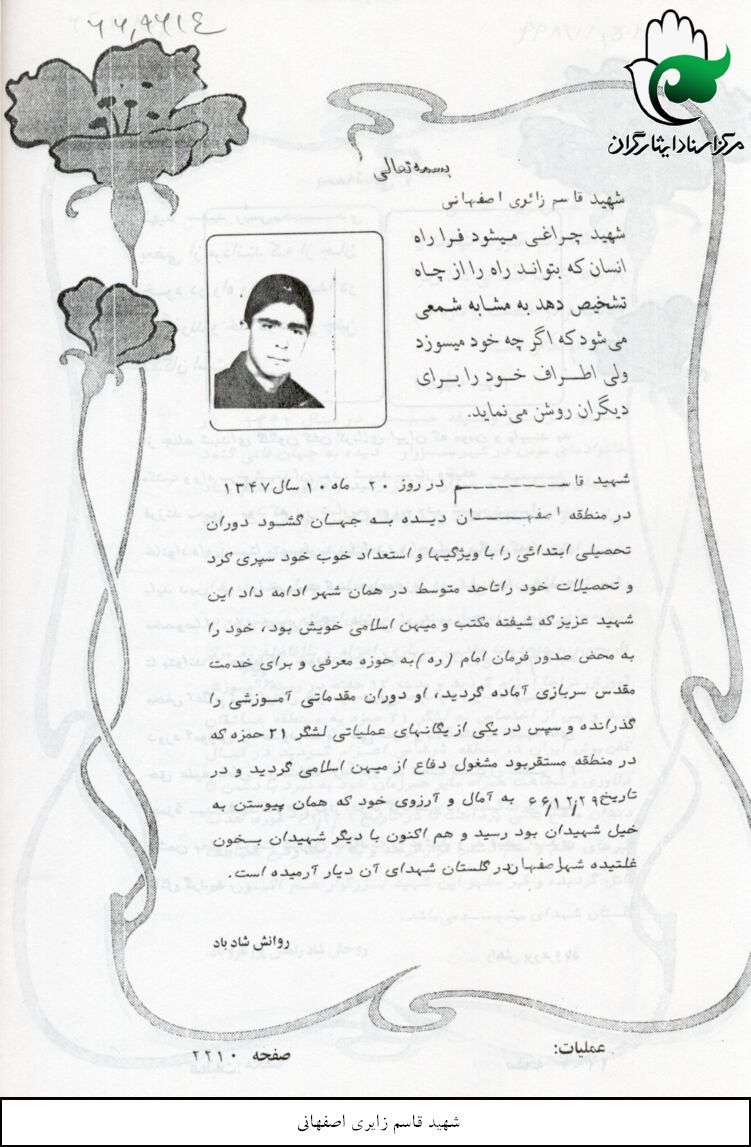 مرکز اسناد ایثارگران
بسمه تعالی
شهید قاسم زائری اصفهانی
شهید چراغی میشود فرا راه
انسان که بتواند راه را از چاه
تشخیص دهد به مشابه شمعی
می‌شود که اگر چه خود میسوزد
ولی اطراف خود را برای
دیگران روشن می‌نماید.
شهید قاسم در روز ۲۰ ماه ۱۰ سال ۱۳۴۷
در منطقه اصفهان دیده به جهان گشود دوران
تحصیلی ابتدائی را با ویژگیها و استعداد خوب خود سپری کرد
و تحصیلات خود را تاحد متوسط در همان شهر ادامه داد این
شهید عزیز که شیفته مکتب و میهن اسلامی خویش بود، خود را
به محض صدور فرمان امام (ره) به حوزه معرفی و برای خدمت
مقدس سربازی آماده گردید، او دوران مقدماتی آموزشی را
گذرانده و سپس در یکی از یگانهای عملیاتی لشگر ۲۱ حمزه که
در منطقه مستقر بود مشغول دفاع از میهن اسلامی گردید و در
تاریخ ۶۶/۱۲/۲۹ به آمال و آرزوی خود که همان پیوستن به
خیل شهیدان بود رسید و هم اکنون با دیگر شهیدان بخون
غلتیده شهر اصفهان در گلستان شهدای آن دیار آرمیده است.
روانش شاد باد
عملیات:
صفحه ۲۲۱۰
شهید قاسم زایری اصفهانی